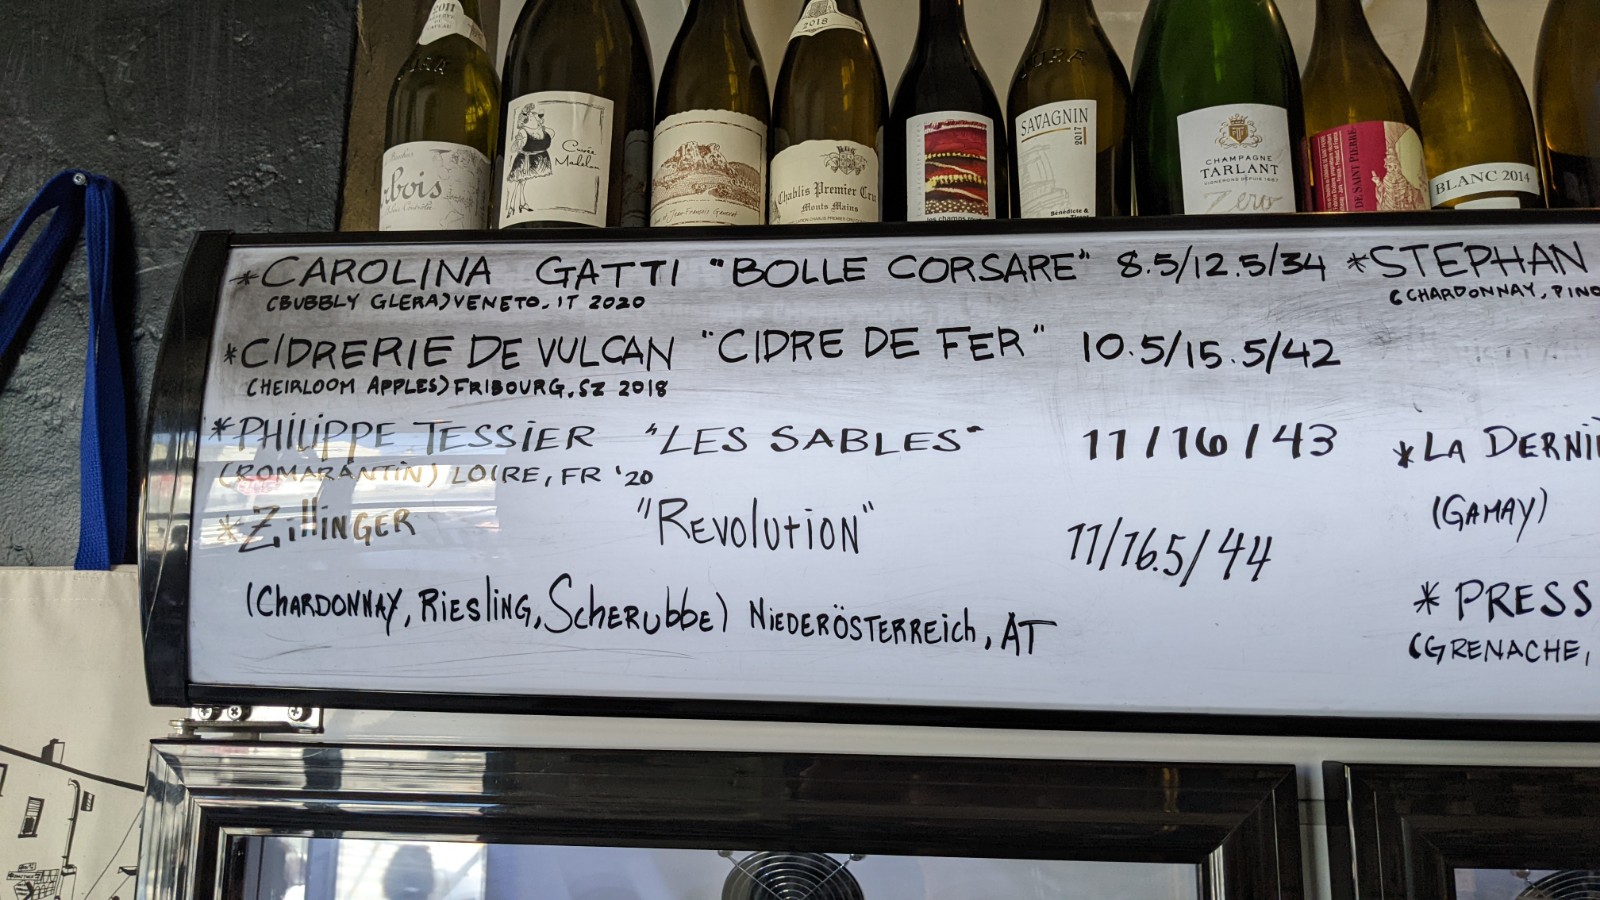 2011
JURA
bois
Cuvée
Madelon
2018
Chablis Premier Cru
Monts Mains
les champs
JURA
SAVAGNIN
2017
Bénédicte &
CHAMPAGNE
TARLANT
Zero
DE SAINT PIERRE
BLANC 2014
*CAROLINA GATTI "BOLLE CORSARE" 8.5/12.5/34
(BUBBLY GLERA) VENETO, IT 2020
*CIDRERIE DE VULCAN "CIDRE DE FER" 10.5/15.5/42
(HEIRLOOM APPLES) FRIBOURG, SZ 2018
*PHILIPPE TESSIER "LES SABLES" 11/16/43
(ROMARANTIN) LOIRE, FR '20
*ZillinGER "Revolution" 11/16.5/44
(Chardonnay, Riesling, Scherubbe) Niederösterreich, AT
*STEPHAN
(CHARDONNAY, PINO
*LA DERNI
(GAMAY)
* PRESS
(GRENACHE,